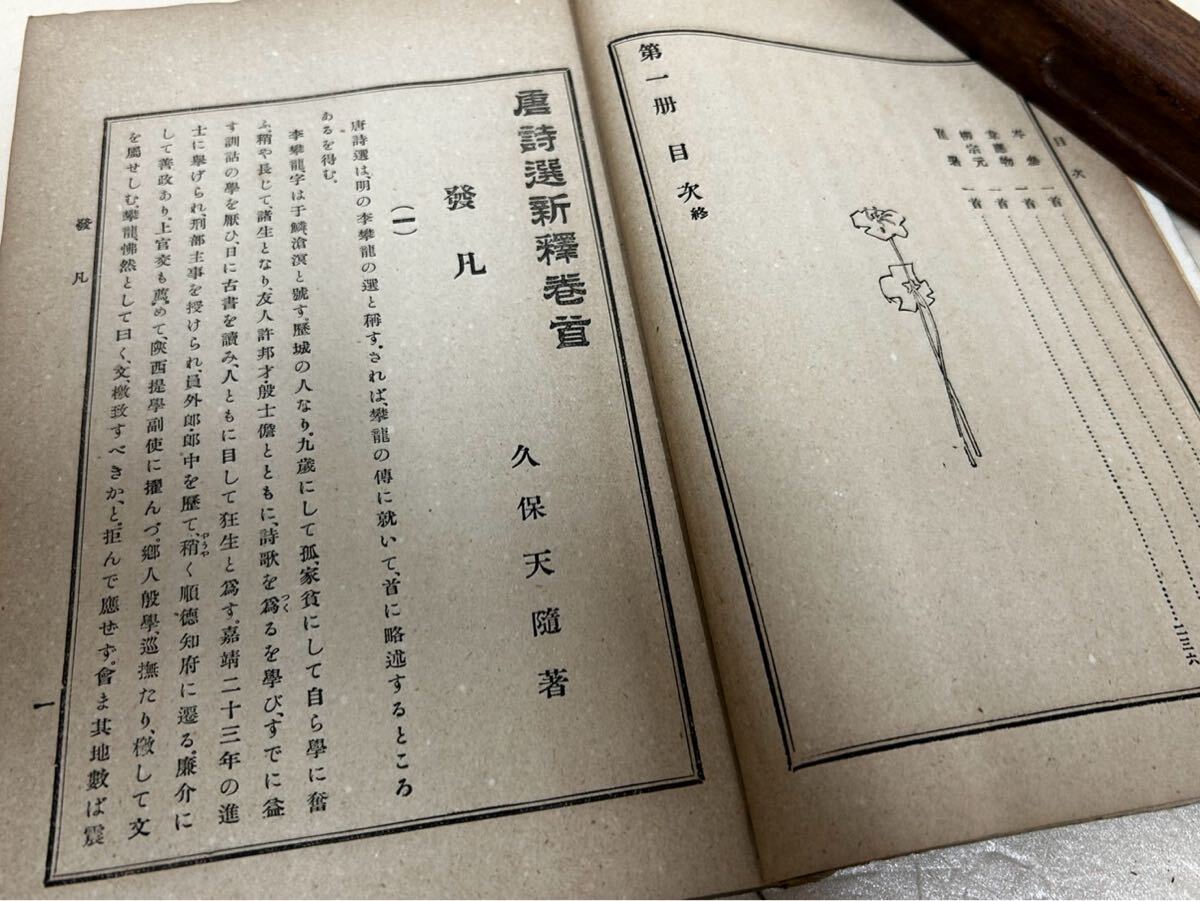 目次
岑參 一首
韋應物 一首
柳宗元 一首
崔署 一首 二三六
第一册 目次 終
唐詩選新釋卷首
久保天隨著
發凡
(一)
唐詩選は、明の李攀龍の選と稱す。されば、攀龍の傳に就いて、首に略述するところ
あるを得む。
李攀龍、字は于鱗、滄溟と號す。歷城の人なり。九歲にして孤、家貧にして自ら學に奮
ふ、稍や長じて、諸生となり、友人許邦才・殷士儋とともに、詩歌を爲るを學び、すでに益
す訓詁の學を厭ひ、日に古書を讀み、人ともに目して狂生と爲す。嘉靖二十三年の進
士に擧げられ、刑部主事を授けられ、員外郎・郎中を歷て、稍く順德知府に遷る。廉介に
して善政あり、上官交も薦めて、陝西提學副使に擢んづ。鄕人殷學、巡撫たり、檄して文
を屬せしむ、攀龍、怫然として曰く、文、檄致すべきか、と。拒んで應せず。會ま其地數ば震
發凡
一